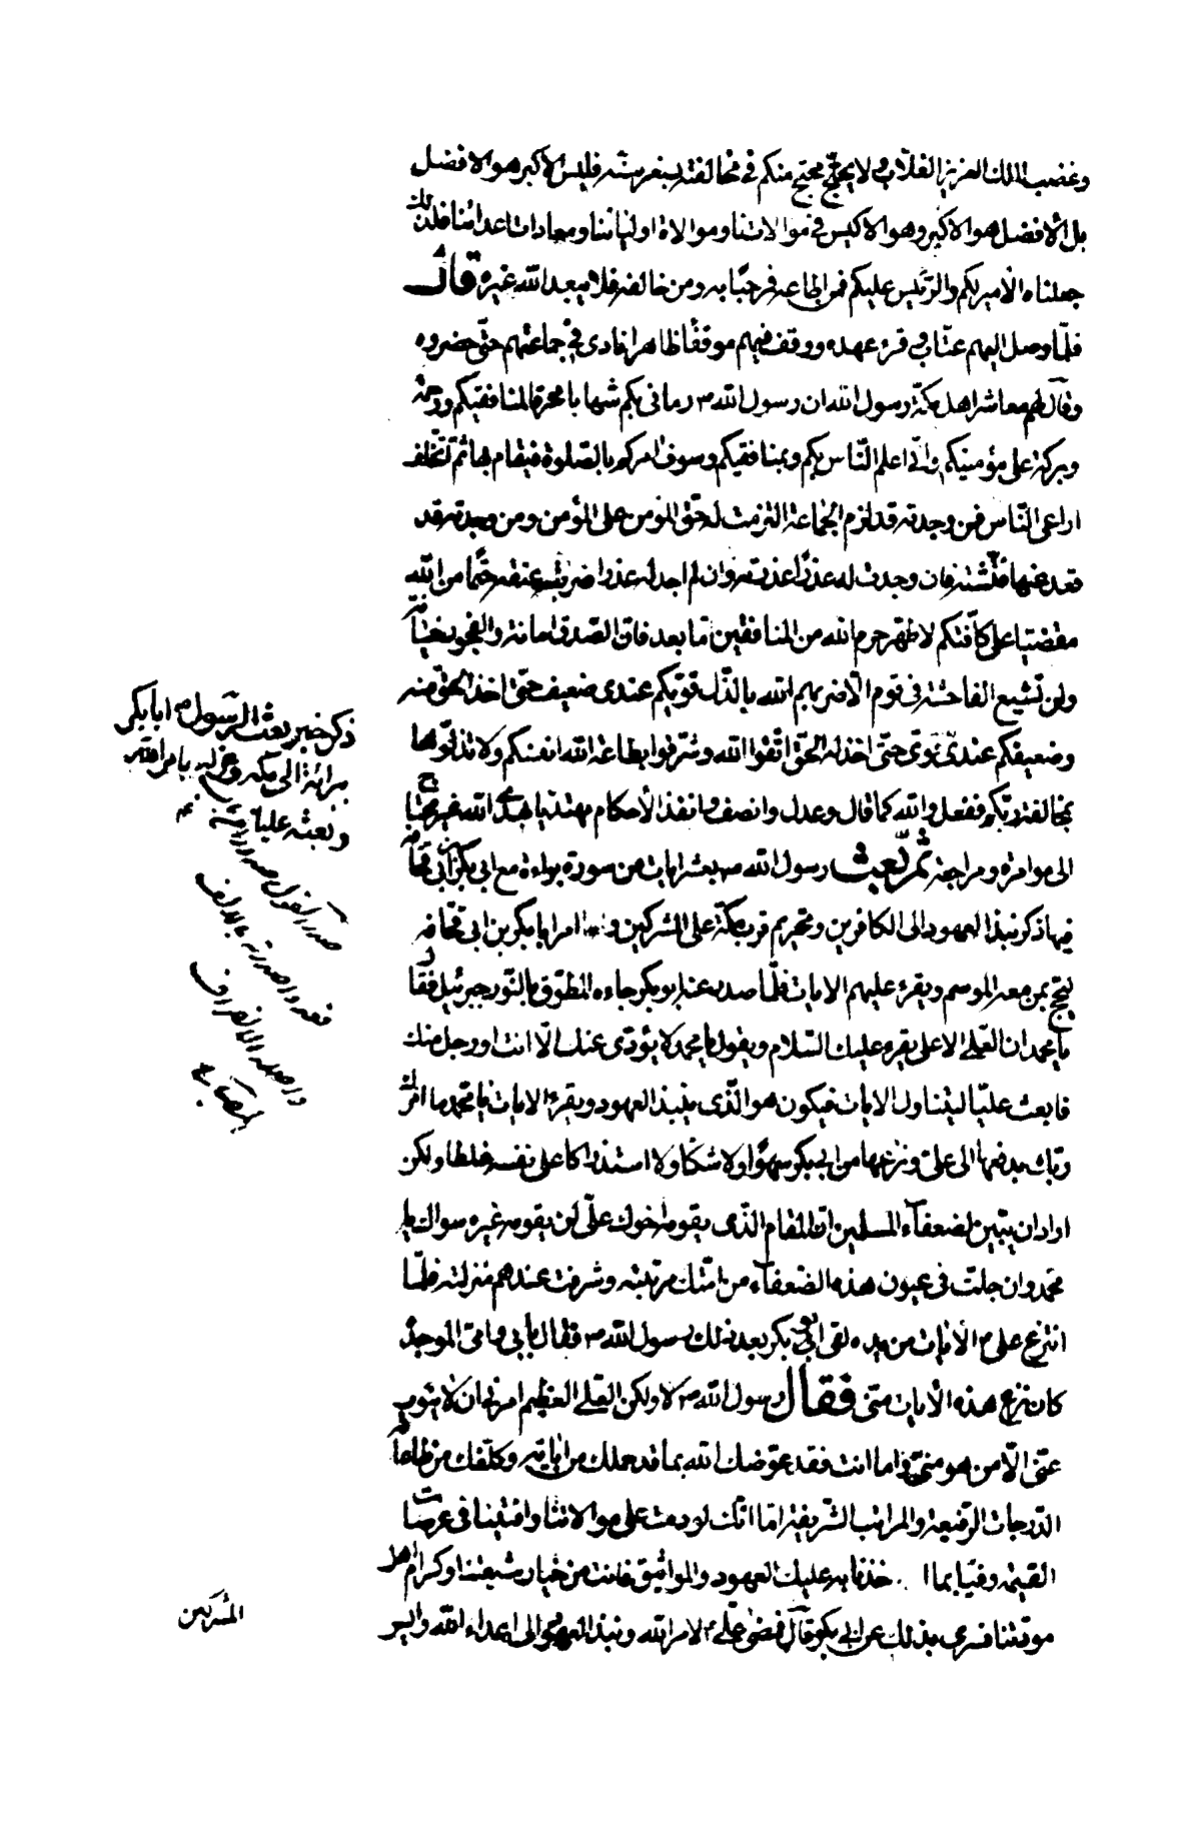 وغضب الملك العزيز الغلاب ولا يحتج محتج منكم في مخالفته بصغر سنه فليس الاكبر هو الافضل
بل الافضل هو الاكبر وهو الاكيس في موالاتنا وموالاة اوليائنا ومعادات اعدائنا فلذلك
جعلناه الامير لكم والرئيس عليكم فمن اطاعه فمرحبًا به ومن خالفه فلا يبعد الله غيره قال
فلما وصل اليهم عتاب وقرء عهده ووقف فيهم موقفًا ظاهرا نادى في جماعتهم حتى حضروه
وقال لهم معاشر اهل مكة رسول الله ان رسول الله ص رماني بكم شهابا محرقا لمنافقيكم ورحمة
وبركة على مؤمنيكم واني اعلم الناس بكم وبمنافقيكم وسوف امركم بالصلوة فيقام بها ثم اتخلف
اراعى الناس فمن وجدته قد لزم الجماعة التزمت له حق المؤمن على المؤمن ومن وجدته قد
قعد عنها فتشته فان وجدت له عذرًا عذرته وان لم اجد له عذرا ضربت عنقه حتمًا من الله
مقضيا على كافتكم لاطهر حرم الله من المنافقين اما بعد فان الصدق امانة والفجور خيانة
ولن تشيع الفاحشة في قوم الا ضربهم الله بالذل قويكم عندى ضعيف حتى اخذ الحق منه
وضعيفكم عندى قوى حتى اخذ له الحق اتقوا الله وشرفوا بطاعة الله انفسكم ولا تذلوها
بمخالفة ربكم ففعل والله كما قال وعدل وانصف وانفذ الأحكام مهتديا بهدى الله غير محتاج
الى موامرة ومراجعة ثمّ بعث رسول الله ص بعشر ايات من سورة براءة مع ابي بكر بن ابي قحافة
فيها ذكر نبذ العهود الى الكافرين وتحريم قرب مكة على المشركين و امر ابا بكر بن ابي قحافه
ليحج بمن معه الموسم ويقرء عليهم الايات فلما صدر عنه ابو بكر جاءه المطوق بالنور جبرئيل فقال
يا محمد ان العلى الاعلى يقرء عليك السلام ويقول يا محمد لا يؤدى عنك الا انت او رجل منك
فابعث عليا ليتناول الايات فيكون هو الذى ينبذ العهود ويقرء الايات يا محمد ما امرك
ربك بدفعها الى على ونزعها من ابي بكر سهوًا ولا شكا ولا استدراكا على نفسه غلطا ولكن
اراد ان يبين لضعفاء المسلمين ان المقام الذى يقومه اخوك على لن يقومه غيره سواك يا
محمد وان جلت في عيون هذه الضعفاء من امتك مرتبته وشرفت عندهم منزلته فلما
انتزع على ع الأيات من يده لقى ابو بكر بعد ذلك رسول الله ص فقال بابي وامى الموجدة
كان نزع هذه الأيات منى فقال رسول الله ص لا ولكن العلى العظيم امرنى ان لا ينوب
عنى الا من هو منى واما انت فقد عوضك الله بما قد حملك من اياته وكلفك من طاعاته
الدرجات الرفيعة والمراتب الشريفة اما انك لو دمت على موالاتنا وافيتنا في عرصات
القيمة وفيا بما اخذنا به عليك العهود والمواثيق فانت من خيار شيعتنا وكرام اهل
مودتنا فسرى بذلك عن ابي بكر قال فمضى على ع لامر الله ونبذ العهود الى اعداء الله وايس
المشركين
ذكر خبر بعث الرسول ص ابا بكر
ببرائة الى مكه وعزله بامر الله
وبعثه عليا